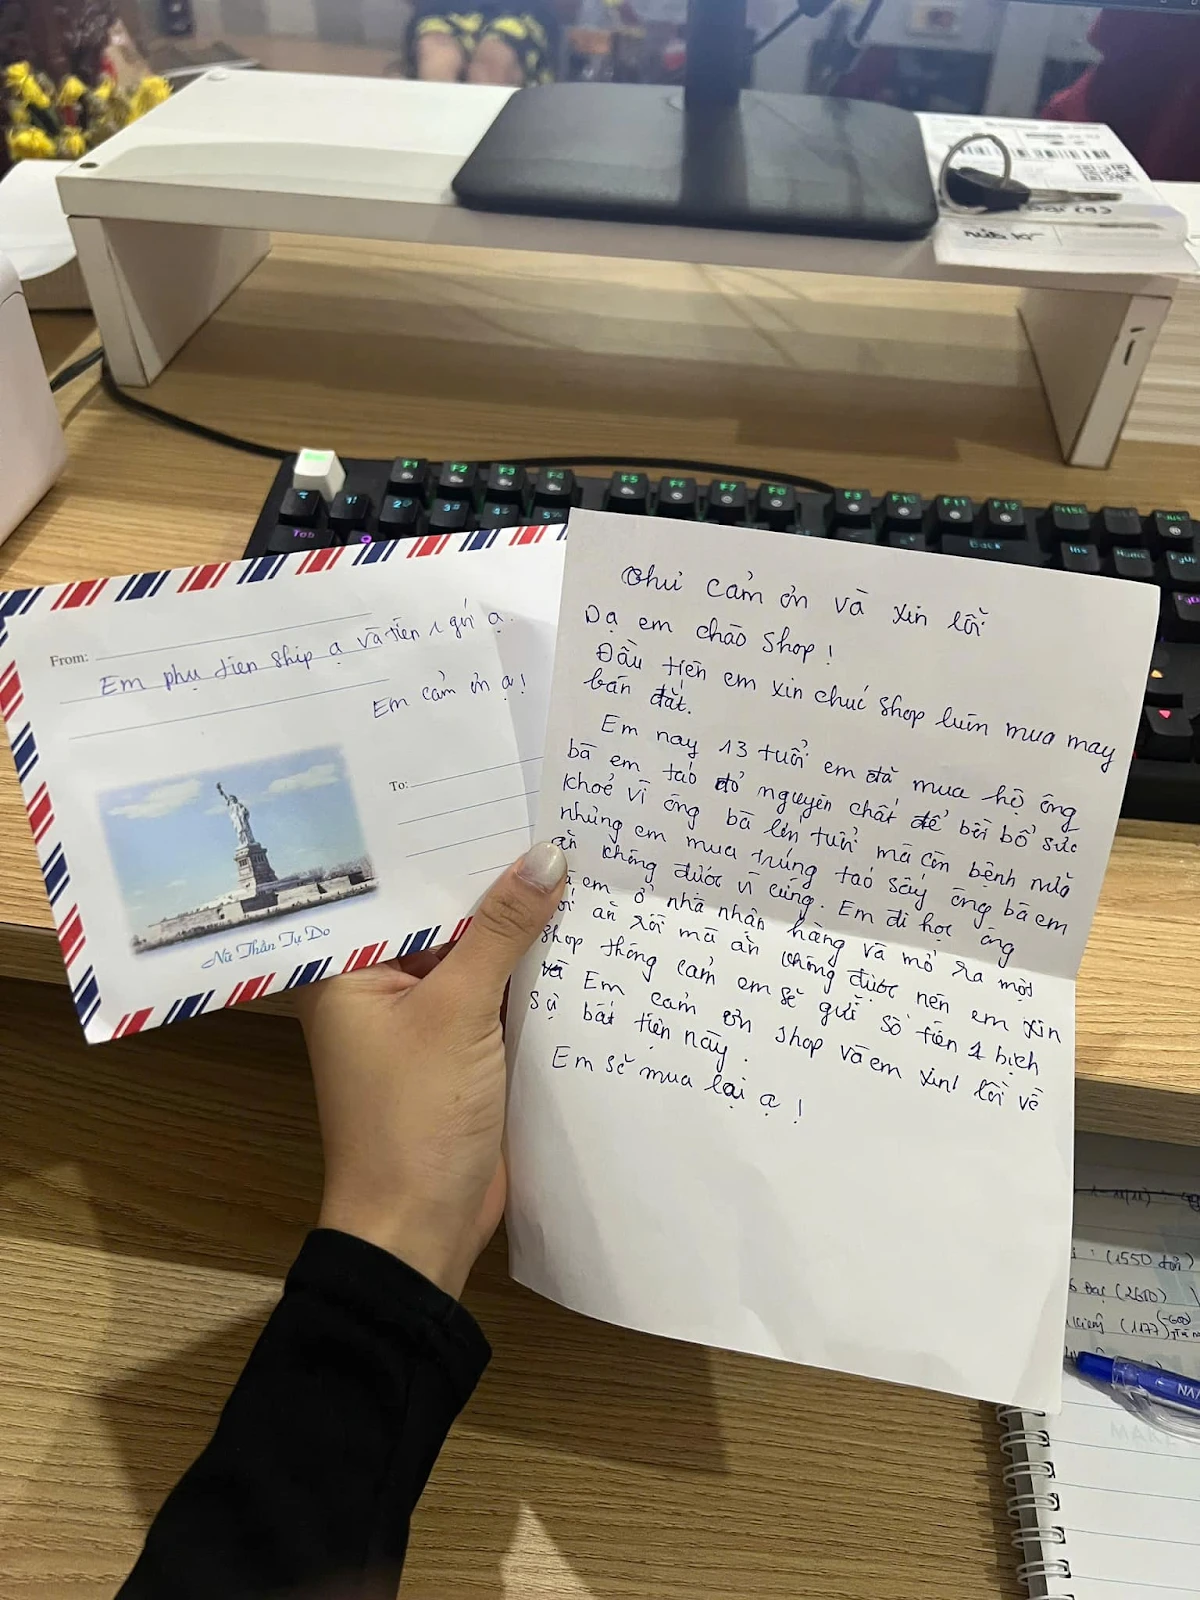 From:
Em phụ tiền ship ạ và tiền 1 gói ạ.
Em cảm ơn ạ!
To:
Nữ Thần Tự Do
Thư cảm ơn và xin lỗi
Dạ em chào shop!
Đầu tiên em xin chúc shop luôn mua may
bán đắt.
Em nay 13 tuổi em đã mua hộ ông
bà em táo đỏ nguyên chất để bồi bổ sức
khoẻ vì ông bà lớn tuổi mà còn bệnh nữa
nhưng em mua trúng táo sấy ông bà em
ăn không được vì cứng. Em đi học ông
bà em ở nhà nhận hàng và mở ra một
gói ăn rồi mà ăn không được nên em xin
shop thông cảm em sẽ gửi số tiền 1 bịch
và Em cảm ơn shop và em xin lỗi về
sự bất tiện này.
Em sẽ mua lại ạ!
F1 F2 F3 F4 F5 F6 F7 F8 F9 F10 F11 F12
Tab
Back
Ins Home PgUp
(1550 đơn)
(2600)
(-600)
(1177)